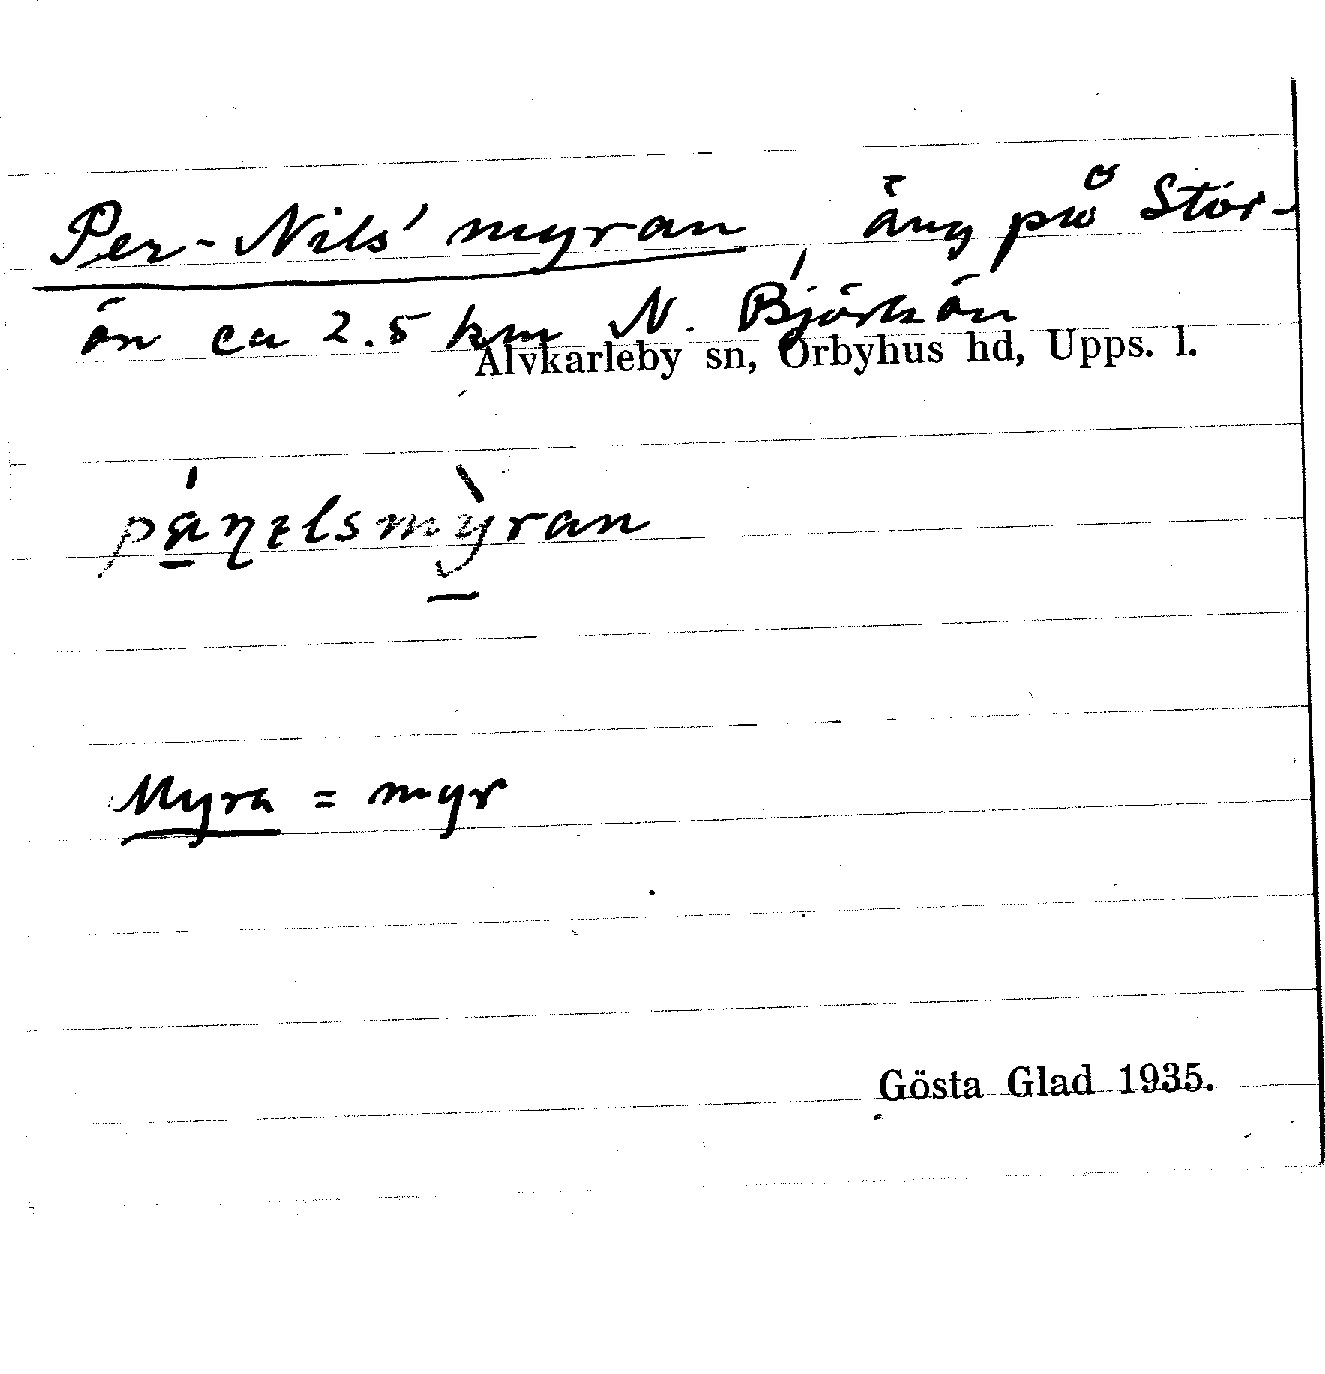 Per-Nils' myran, äng på Stor-
ön ca 2.5 km N. Björkön
Älvkarleby sn, Örbyhus hd, Upps. l.
Myra = myr
Gösta Glad 1935.